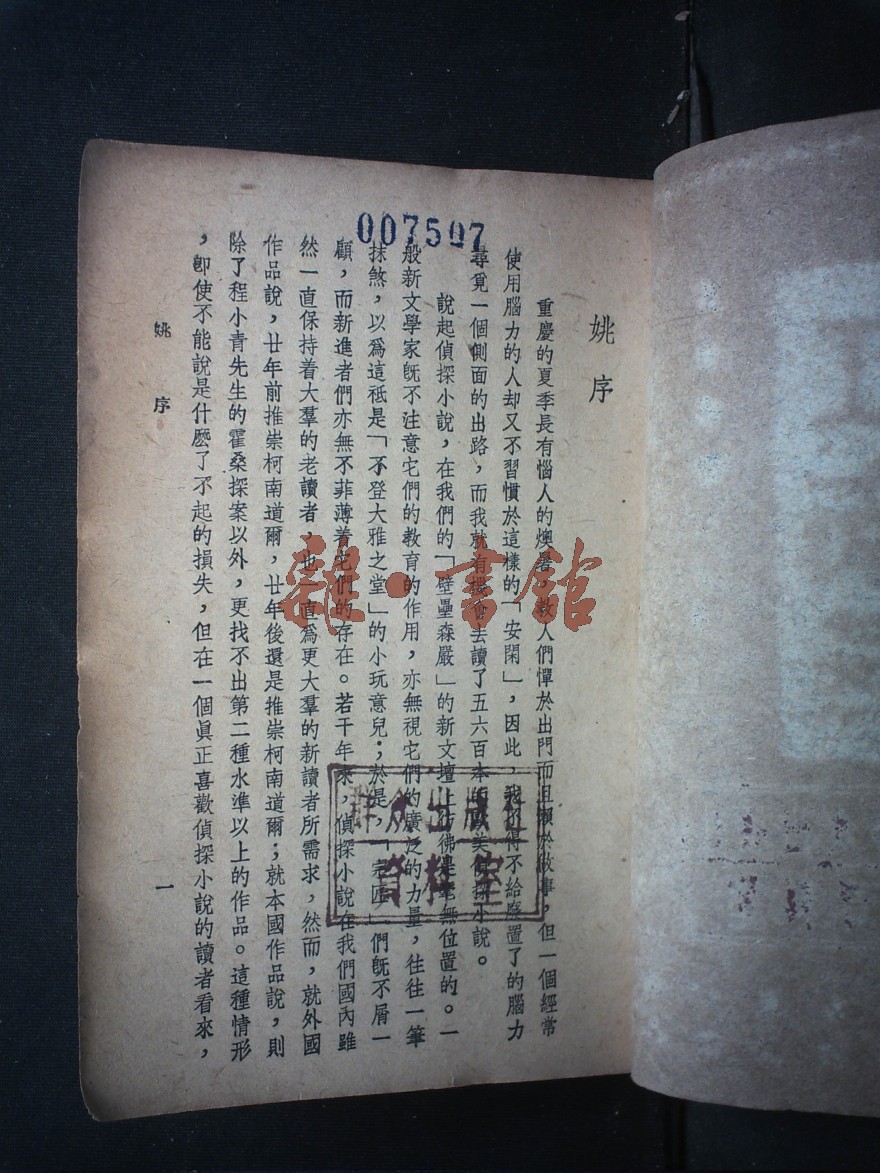 007507
姚序
重慶的夏季長有惱人的燠暑，教人們憚於出門而且懶於做事，但一個經常
使用腦力的人却又不習慣於這樣的「安閑」，因此，我不得不給廢置了的腦力
尋覓一個側面的出路，而我就有機會去讀了五六百本的歐美偵探小說。
說起偵探小說，在我們的「壁壘森嚴」的新文壇上彷彿是毫無位置的。一
般新文學家旣不注意它們的教育的作用，亦無視它們的廣泛的力量，往往一筆
抹煞，以爲這祗是「不登大雅之堂」的小玩意兒；於是，「老匠」們旣不屑一
顧，而新進者們亦無不菲薄着它們的存在。若干年來，偵探小說在我們國內雖
然一直保持着大羣的老讀者，也一直爲更大羣的新讀者所需求，然而，就外國
作品說，廿年前推崇柯南道爾，廿年後還是推崇柯南道爾；就本國作品說，則
除了程小青先生的霍桑探案以外，更找不出第二種水準以上的作品。這種情形
，卽使不能說是什麽了不起的損失，但在一個眞正喜歡偵探小說的讀者看來，
姚序
一
雜·書館
群众出版社
資料室